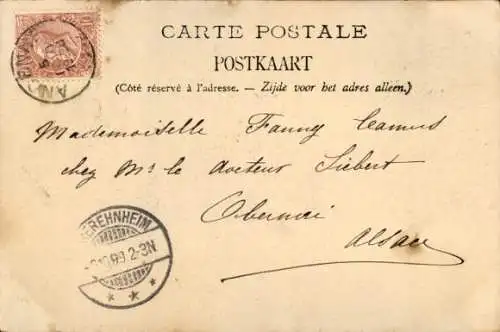 CARTE POSTALE
POSTKAART
(Côté réservé à l'adresse. — Zijde voor het adres alleen.)
Mademoiselle Fanny Camus
chez Mr le docteur Siebert
Obernai
Alsace
EREHNHEIM
99 2-3N